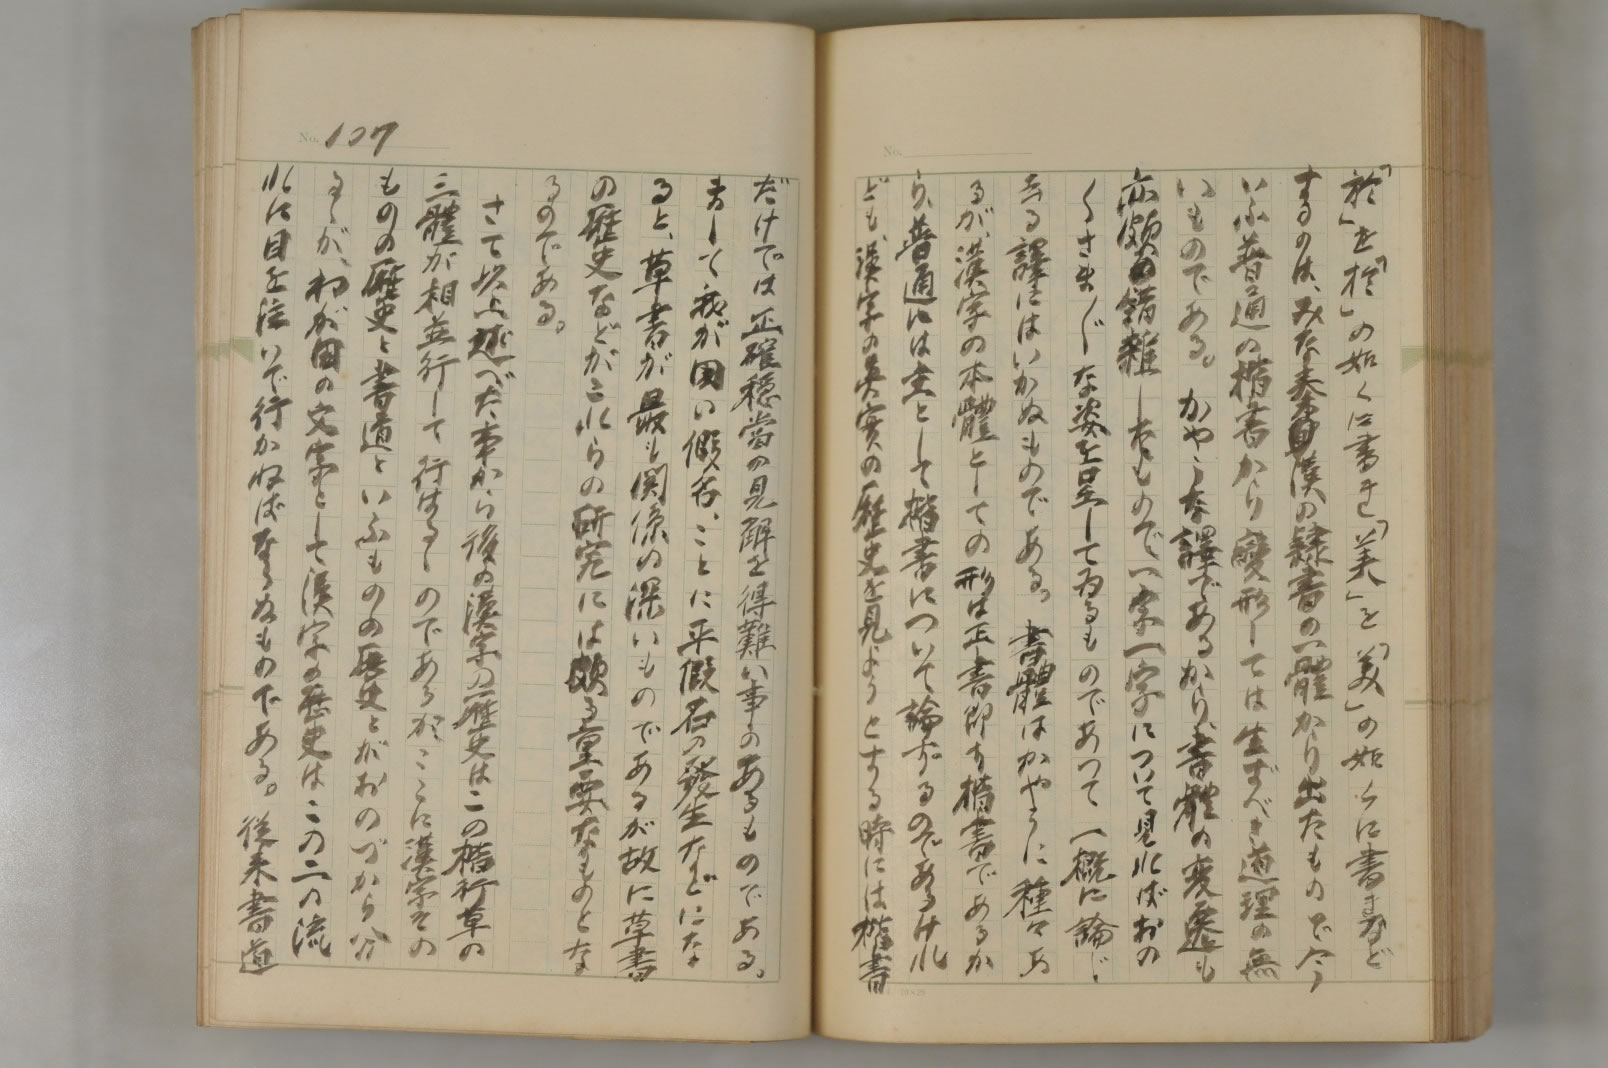 No.
「於」を「扵」の如くに書き「美」を「羙」の如くに書きなど
するのは、みな秦漢の隷書の一體から出たもので今
いふ普通の楷書から變形しては生ずべき道理の無
いものである。かやうな譯であるから、書體の変遷も
亦頗る錯雑したもので一字一字について見ればおの
くさま〴〵な姿を呈してゐるものであつて一概に論じ
去る譯にはいかぬものである。書體はかやうに種々あ
るが、漢字の本體としての形は正書即ち楷書であるか
ら、普通には主として楷書について論ずるのであるけれ
ども、漢字の真實の歴史を見ようとする時には楷書
10×25
No. 107
だけでは正確穏當の見解を得難い事のあるものである。
まして我が国の假名、ことに平假名の發生などにな
ると、草書が最も関係の深いものであるが故に草書
の歴史などがこれらの研究には頗る重要なものとな
るのである。
さて以上述べた事から後の漢字の歴史はこの楷行草の
三體が相並行して行はるゝのであるが、ここに漢字その
ものの歴史と書道といふものの歴史とがおのづから分
るゝが、わが国の文字として漢字の歴史はこの二の流
れに目を注いで行かねばならぬものである。従来書道